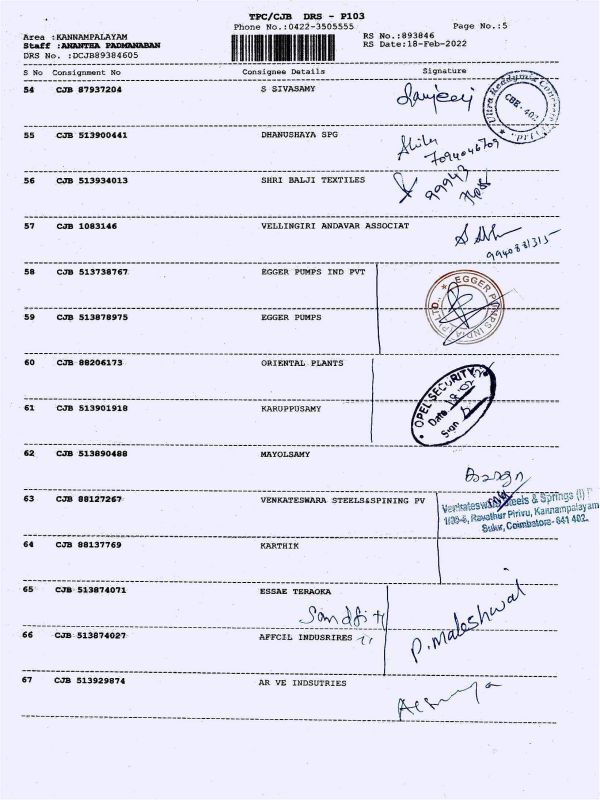 TPC/CJB DRS - P103
Phone No.:0422-3505555
Page No.:5
Area :KANNAMPALAYAM
RS No.:893846
Staff :ANANTHA PADMANABAN
RS Date:18-Feb-2022
DRS No. :DCJB89384605
S No Consignment No Consignee Details Signature
54 CJB 87937204 S SIVASAMY
CBE-402
55 CJB 513900441 DHANUSHAYA SPG
7094046709
56 CJB 513934013 SHRI BALJI TEXTILES
99943
57 CJB 1083146 VELLINGIRI ANDAVAR ASSOCIAT
9940881315
58 CJB 513738767 EGGER PUMPS IND PVT
EGGER PUMPS INDIA PVT LTD.
59 CJB 513878975 EGGER PUMPS
60 CJB 88206173 ORIENTAL PLANTS
OPEL SECURITY
Date 18.02
Sign
61 CJB 513901918 KARUPPUSAMY
62 CJB 513890488 MAYOLSAMY
63 CJB 88127267 VENKATESWARA STEELS&SPINING PV
Venkateswara Steels & Springs (I) P
Ravathur Pirivu, Kannampalayam
Sulur, Coimbatore-641 402.
64 CJB 88137769 KARTHIK
65 CJB 513874071 ESSAE TERAOKA
66 CJB 513874027 AFFCIL INDUSRIRES
P. Maleshwai
67 CJB 513929874 AR VE INDSUTRIES